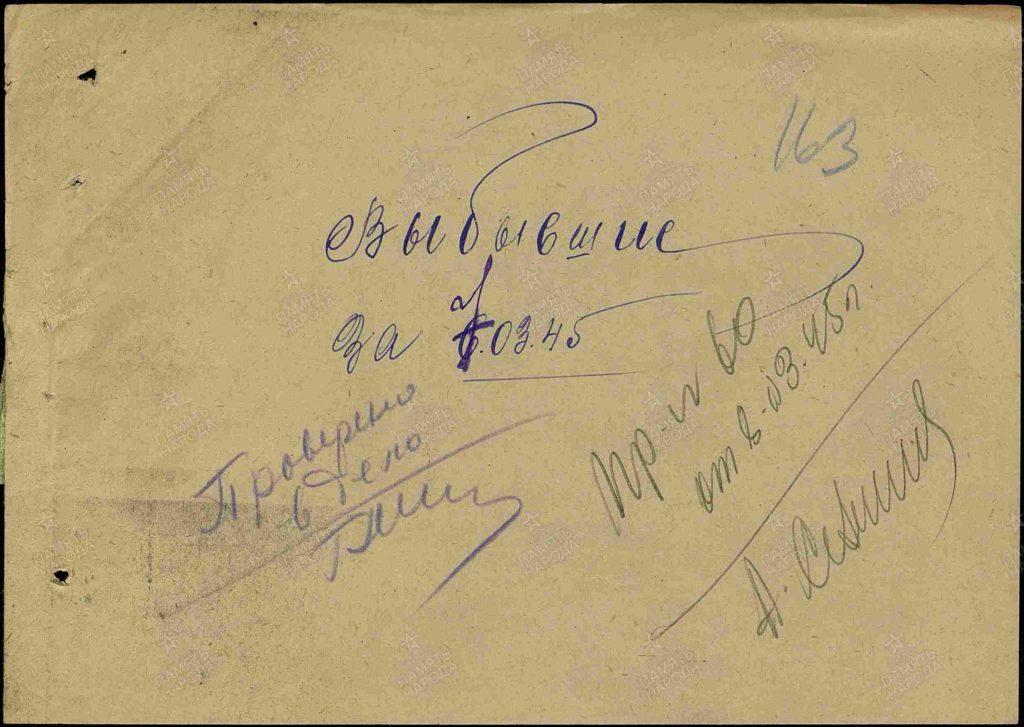 163
Выбывшие
За .03.45
Проверено
в дело
Пр-л ВО
от 8.03.45г.
ПАМЯТЬ
НАРОДА